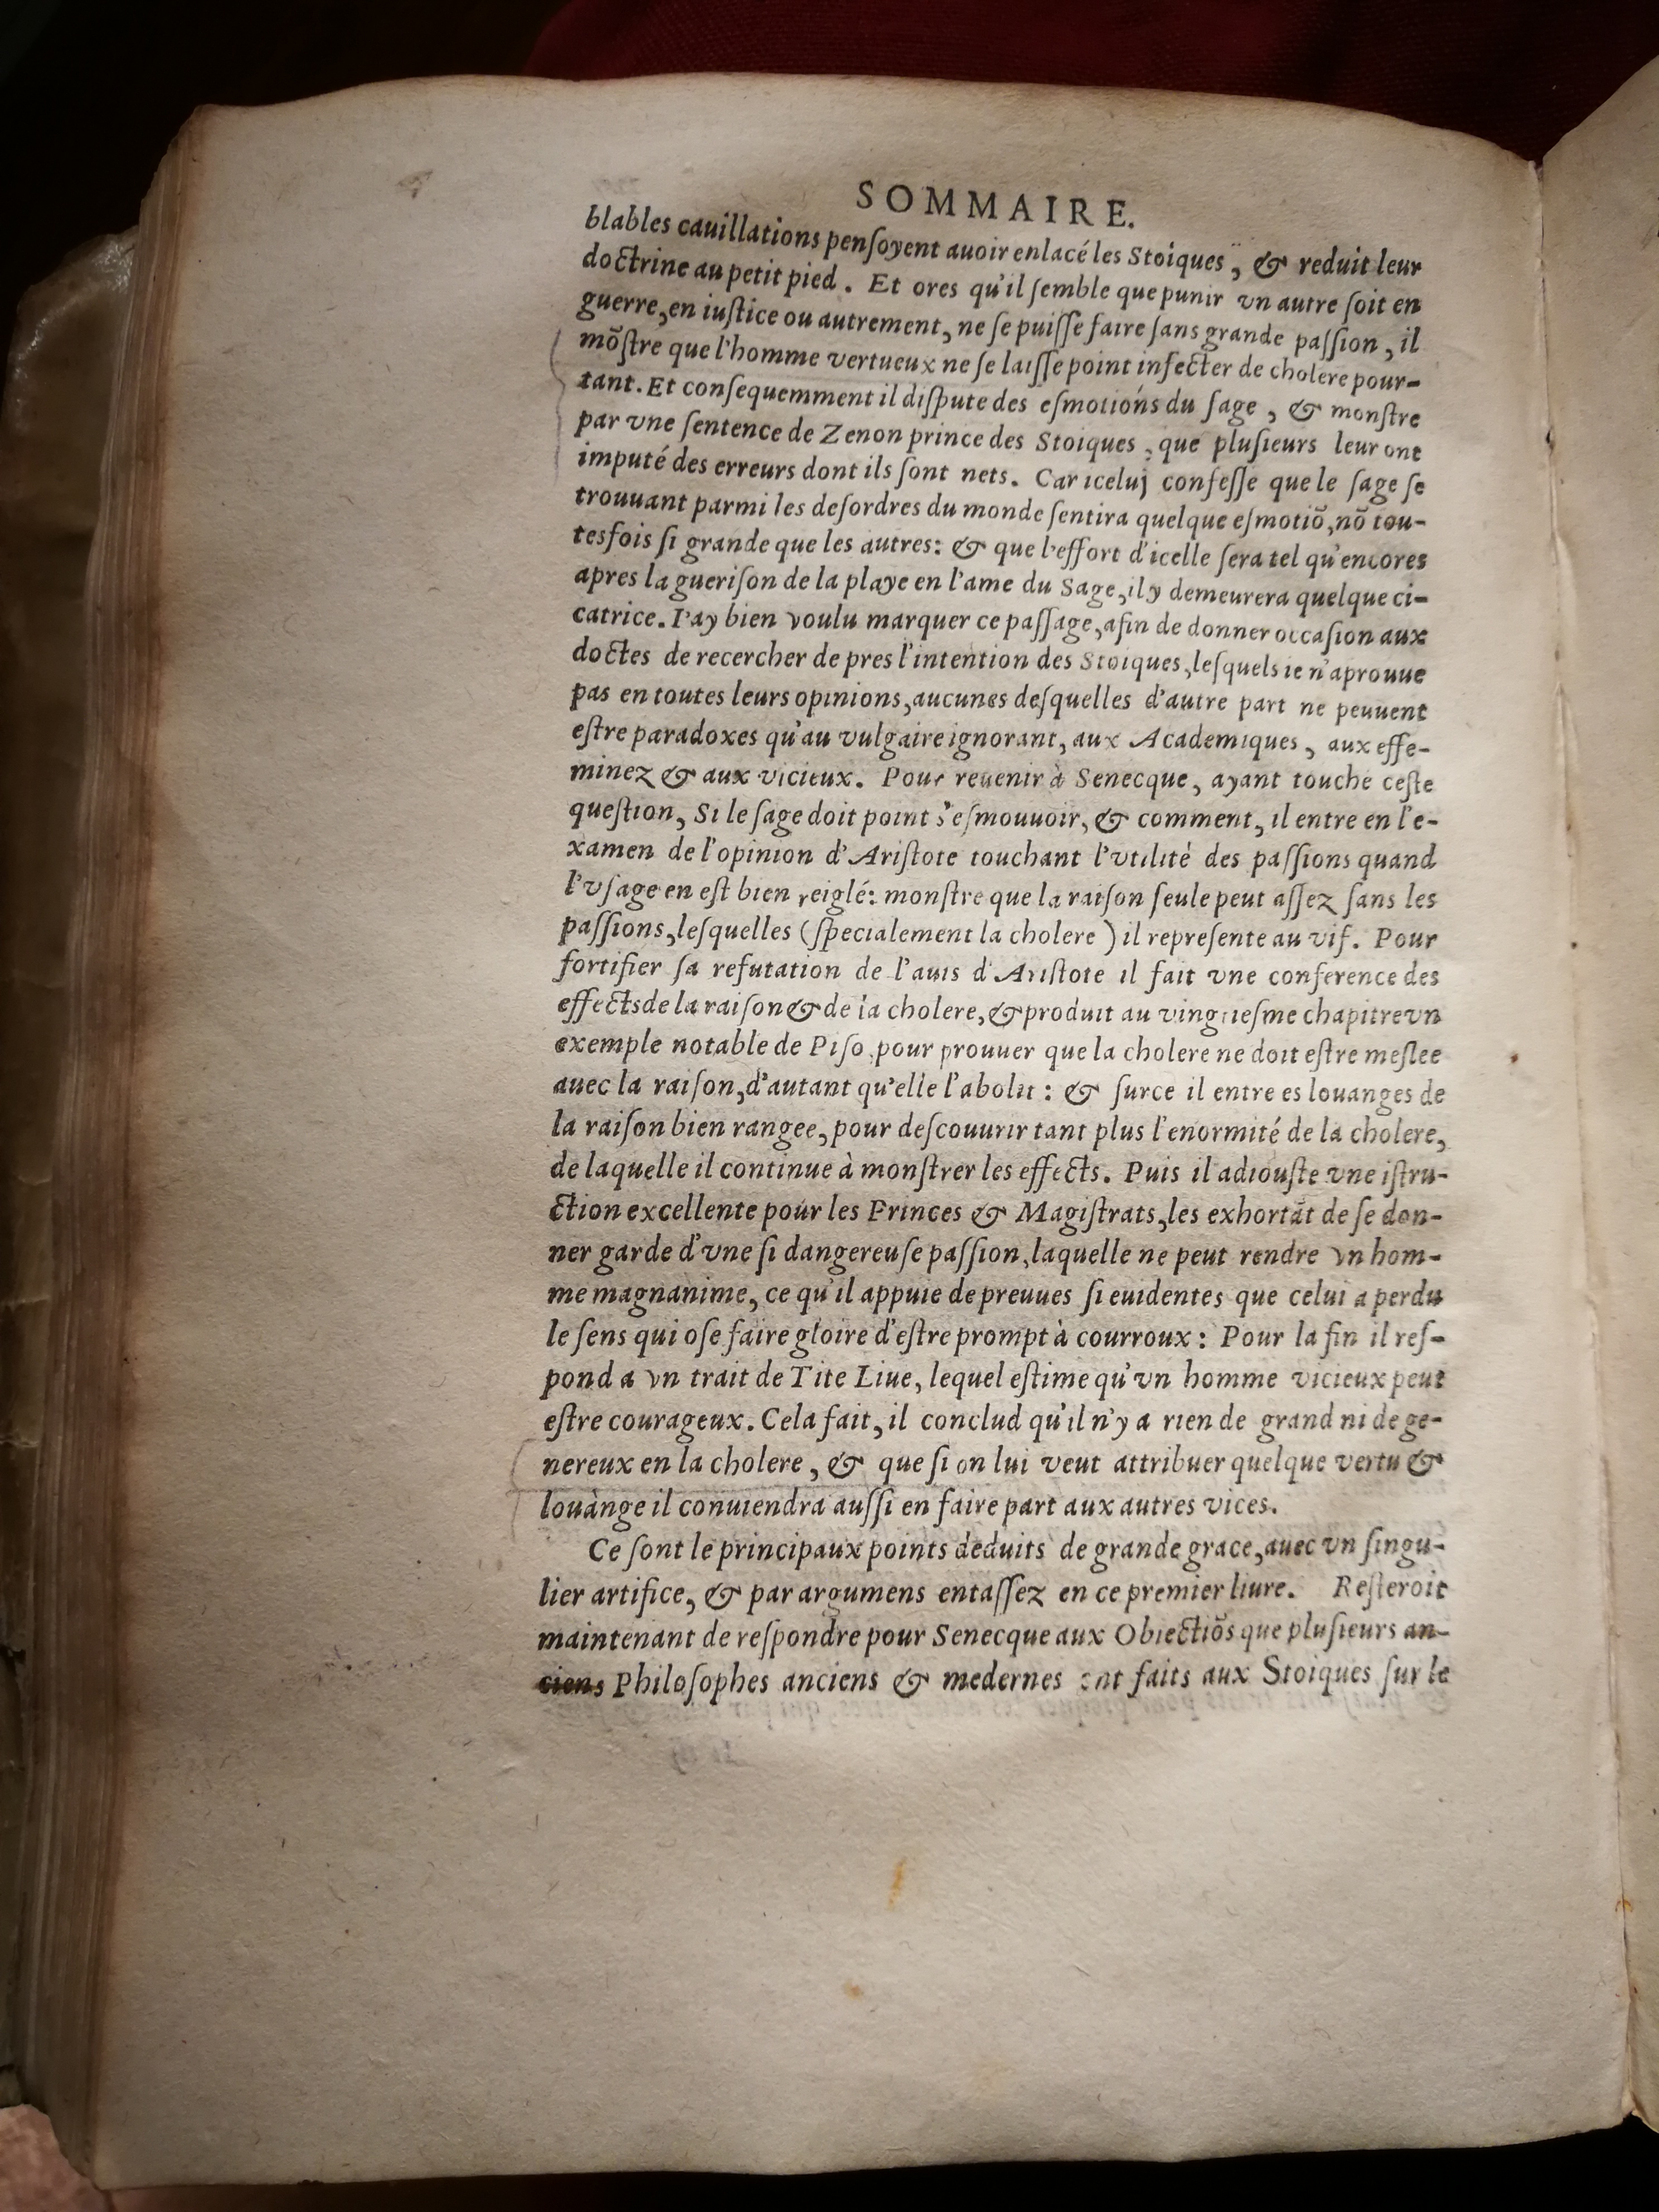 SOMMAIRE.
blables cauillations penſoyent auoir enlacé les Stoiques, & reduit leur
doctrine au petit pied. Et ores qu'il ſemble que punir vn autre ſoit en
guerre, en iuſtice ou autrement, ne ſe puiſſe faire ſans grande paſſion, il
mõſtre que l'homme vertueux ne ſe laiſſe point infecter de cholere pour-
tant. Et conſequemment il diſpute des eſmotions du ſage, & monſtre
par vne ſentence de Zenon prince des Stoiques, que pluſieurs leur ont
imputé des erreurs dont ils ſont nets. Car iceluj confeſſe que le ſage ſe
trouuant parmi les deſordres du monde ſentira quelque eſmotiõ, nõ tou-
tesfois ſi grande que les autres: & que l'effort d'icelle ſera tel qu'encores
apres la gueriſon de la playe en l'ame du Sage, il y demeurera quelque ci-
catrice. I'ay bien voulu marquer ce paſſage, afin de donner occaſion aux
doctes de recercher de pres l'intention des Stoiques, leſquels ie n'aprouue
pas en toutes leurs opinions, aucunes deſquelles d'autre part ne peuuent
eſtre paradoxes qu'au vulgaire ignorant, aux Academiques, aux effe-
minez & aux vicieux. Pour reuenir à Senecque, ayant touché ceſte
queſtion, Si le ſage doit point s'eſmouuoir, & comment, il entre en l'e-
xamen de l'opinion d'Ariſtote touchant l'vtilité des paſſions quand
l'vſage en eſt bien reiglé: monſtre que la raiſon ſeule peut aſſez ſans les
paſſions, leſquelles (ſpecialement la cholere) il repreſente au vif. Pour
fortifier ſa refutation de l'auis d'Ariſtote il fait vne conference des
effects de la raiſon & de la cholere, & produit au vingtieſme chapitre vn
exemple notable de Piſo, pour prouuer que la cholere ne doit eſtre meſlee
auec la raiſon, d'autant qu'elle l'abolit: & ſurce il entre es louanges de
la raiſon bien rangee, pour deſcouurir tant plus l'enormité de la cholere,
de laquelle il continue à monſtrer les effects. Puis il adiouſte vne iſtru-
ction excellente pour les Princes & Magiſtrats, les exhortãt de ſe don-
ner garde d'vne ſi dangereuſe paſſion, laquelle ne peut rendre vn hom-
me magnanime, ce qu'il appuie de preuues ſi euidentes que celui a perdu
le ſens qui oſe faire gloire d'eſtre prompt à courroux: Pour la fin il reſ-
pond a vn trait de Tite Liue, lequel eſtime qu'vn homme vicieux peut
eſtre courageux. Cela fait, il conclud qu'il n'y a rien de grand ni de ge-
nereux en la cholere, & que ſi on lui veut attribuer quelque vertu &
louange il conuiendra auſſi en faire part aux autres vices.
Ce ſont le principaux points deduits de grande grace, auec vn ſingu-
lier artifice, & par argumens entaſſez en ce premier liure. Reſteroit
maintenant de reſpondre pour Senecque aux Obiectiõs que pluſieurs an-
ciens Philoſophes anciens & medernes ont faits aux Stoiques ſur le